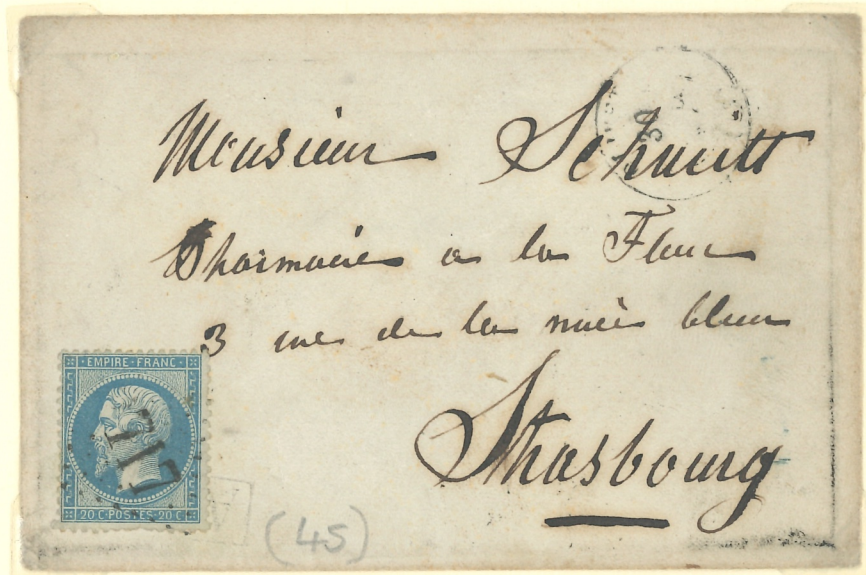 Monsieur Schmitt
Pharmacie a la Fleur
3 rue de la nuée bleue
Strasbourg
EMPIRE-FRANC
20 C-POSTES-20 C
(45)